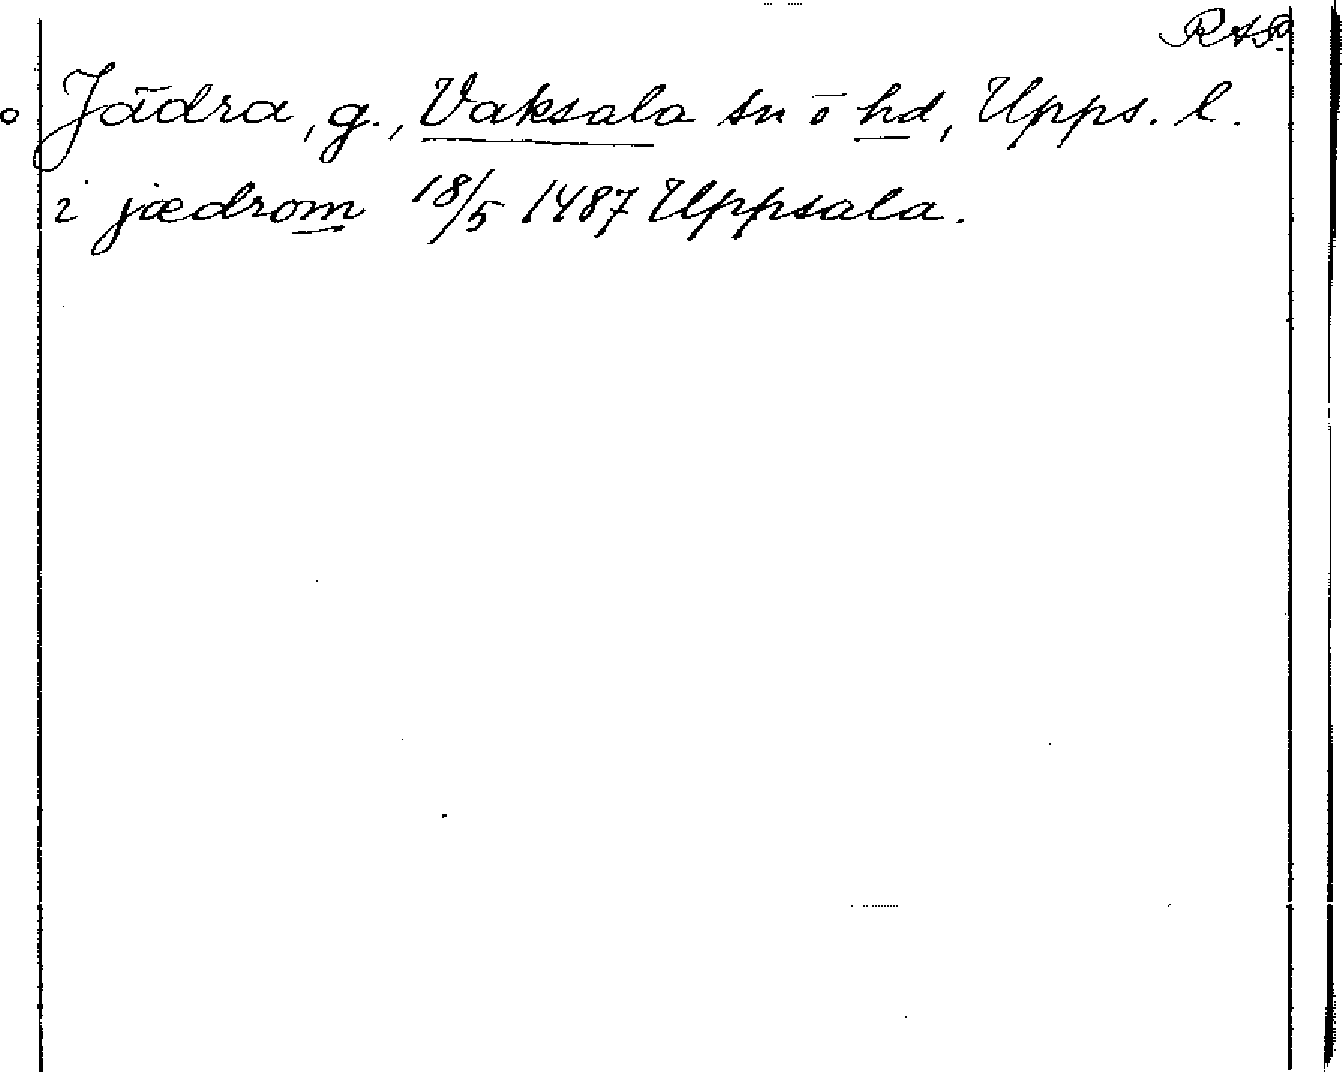 RAP.
Jädra, g., Vaksala sn o hd, Upps. l.
i jædrom 18/5 1487 Uppsala.